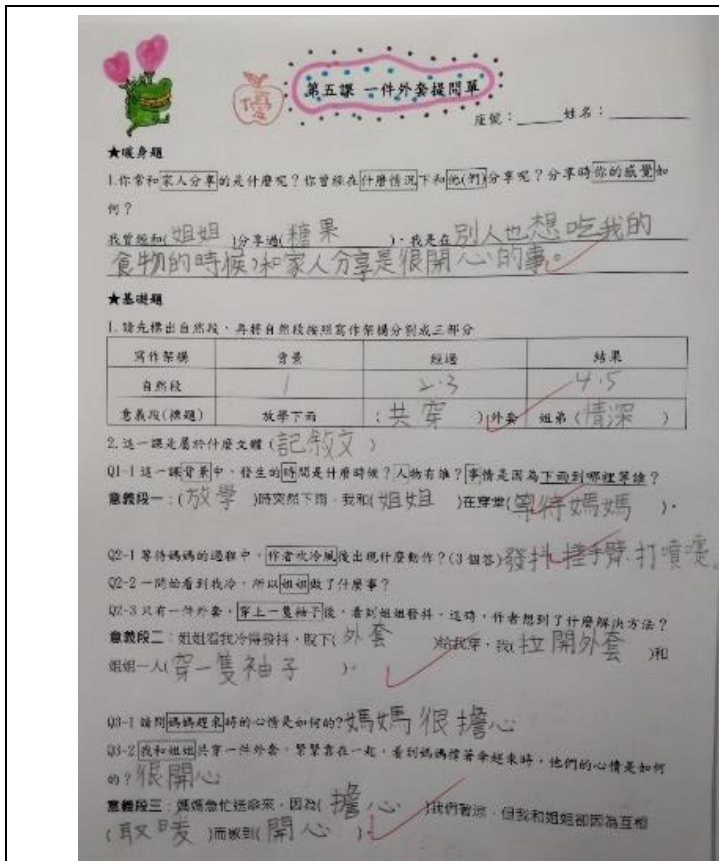 優
第五課 一件外套提問單
座號：＿＿＿姓名：＿＿＿＿＿
★暖身題
1.你常和家人分享的是什麼呢？你曾經在什麼情況下和他(們)分享呢？分享時你的感覺如
何？
我曾經和(姐姐)分享過(糖果)，我是在別人也想吃我的
食物的時候)和家人分享是很開心的事。
★基礎題
1.請先標出自然段，再將自然段按照寫作架構分別成三部分
寫作架構 背景 經過 結果
自然段 1 2.3 4.5
意義段(標題) 放學下雨 (共穿)外套 姐弟(情深)
2.這一課是屬於什麼文體(記敘文)
Q1-1 這一課背景中，發生的時間是什麼時候？人物有誰？事情是因為下雨到哪裡等誰？
意義段一：(放學)時突然下雨，我和(姐姐)在穿堂(等待媽媽)。
Q2-1 等待媽媽的過程中，作者吹冷風後出現什麼動作？(3個答)發抖 搓手臂 打噴嚏。
Q2-2 一開始看到我冷，所以姐姐做了什麼事？
Q2-3 只有一件外套，穿上一隻袖子後，看到姐姐發抖，這時，作者想到了什麼解決方法？
意義段二：姐姐看我冷得發抖，脫下(外套)給我穿，我(拉開外套)和
姐姐一人(穿一隻袖子)。
Q3-1 請問媽媽趕來時的心情是如何的?媽媽很擔心
Q3-2 我和姐姐共穿一件外套，緊緊靠在一起，看到媽媽撐著傘趕來時，他們的心情是如何
的？很開心
意義段三：媽媽急忙送傘來，因為(擔心)我們著涼，但我和姐姐卻因為互相
(取暖)而感到(開心)。